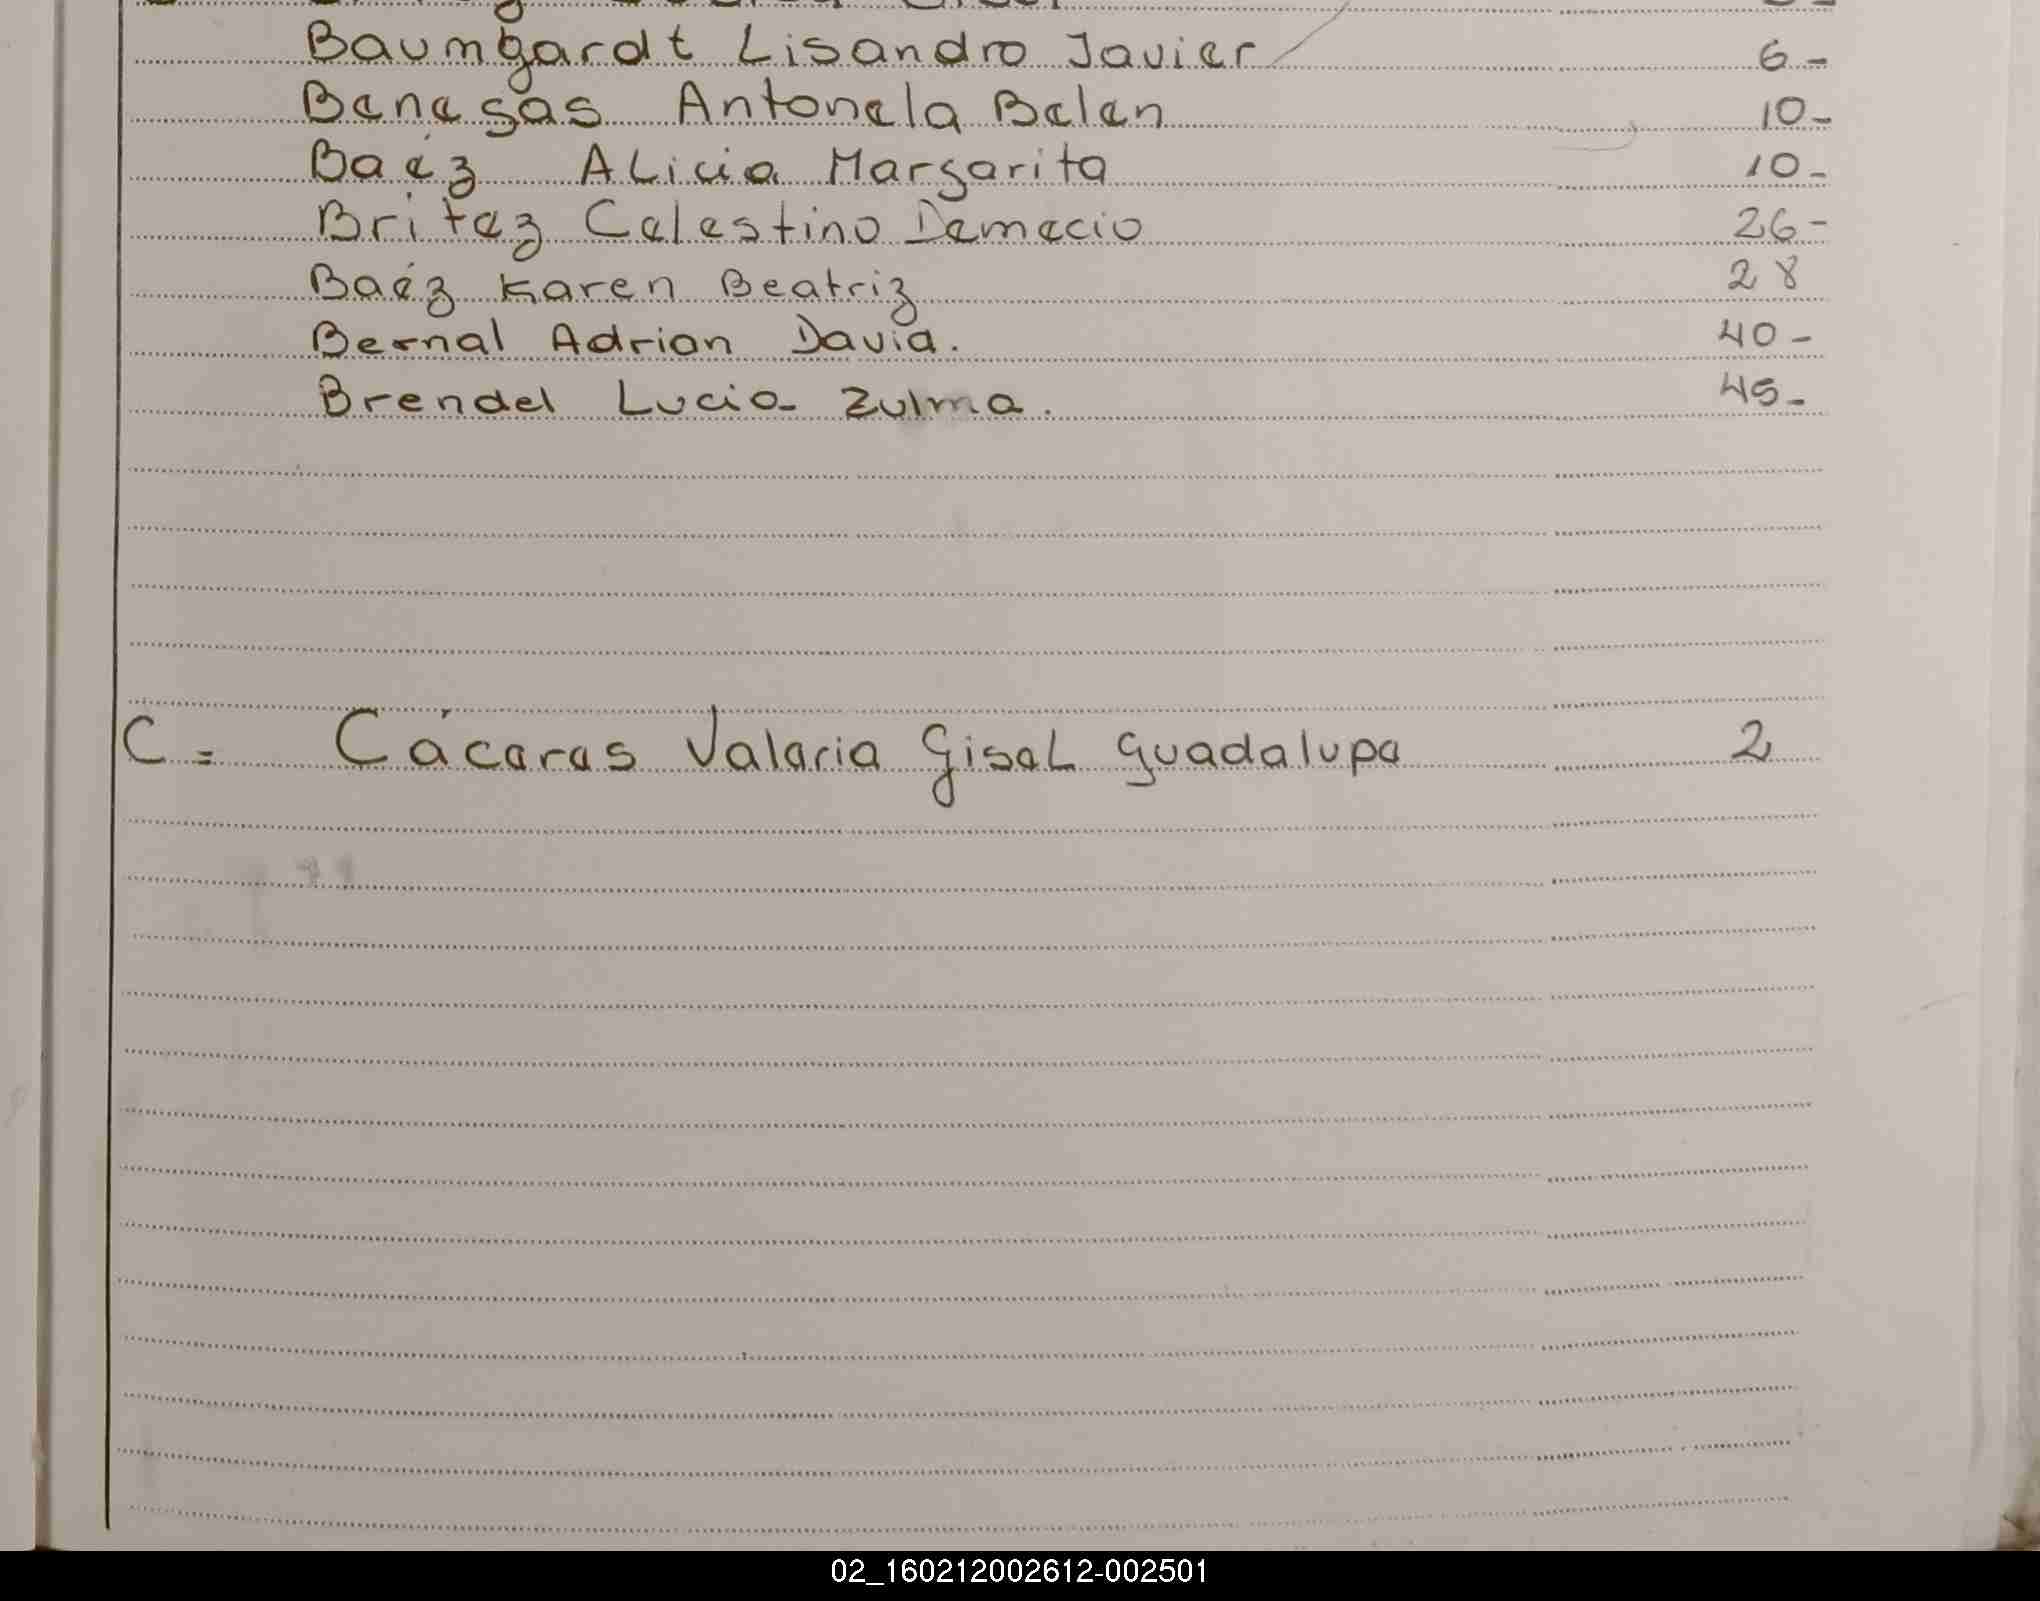 Baumgardt Lisandro Javier 6-
Benegas Antonela Belen 10-
Baéz Alicia Margarita 10-
Britez Celestino Demecio 26-
Baéz Karen Beatriz 28
Bernal Adrian David. 40-
Brendel Lucia Zulma. 45-
C= Cáceres Valeria Gisel Guadalupe 2
02_160212002612-002501